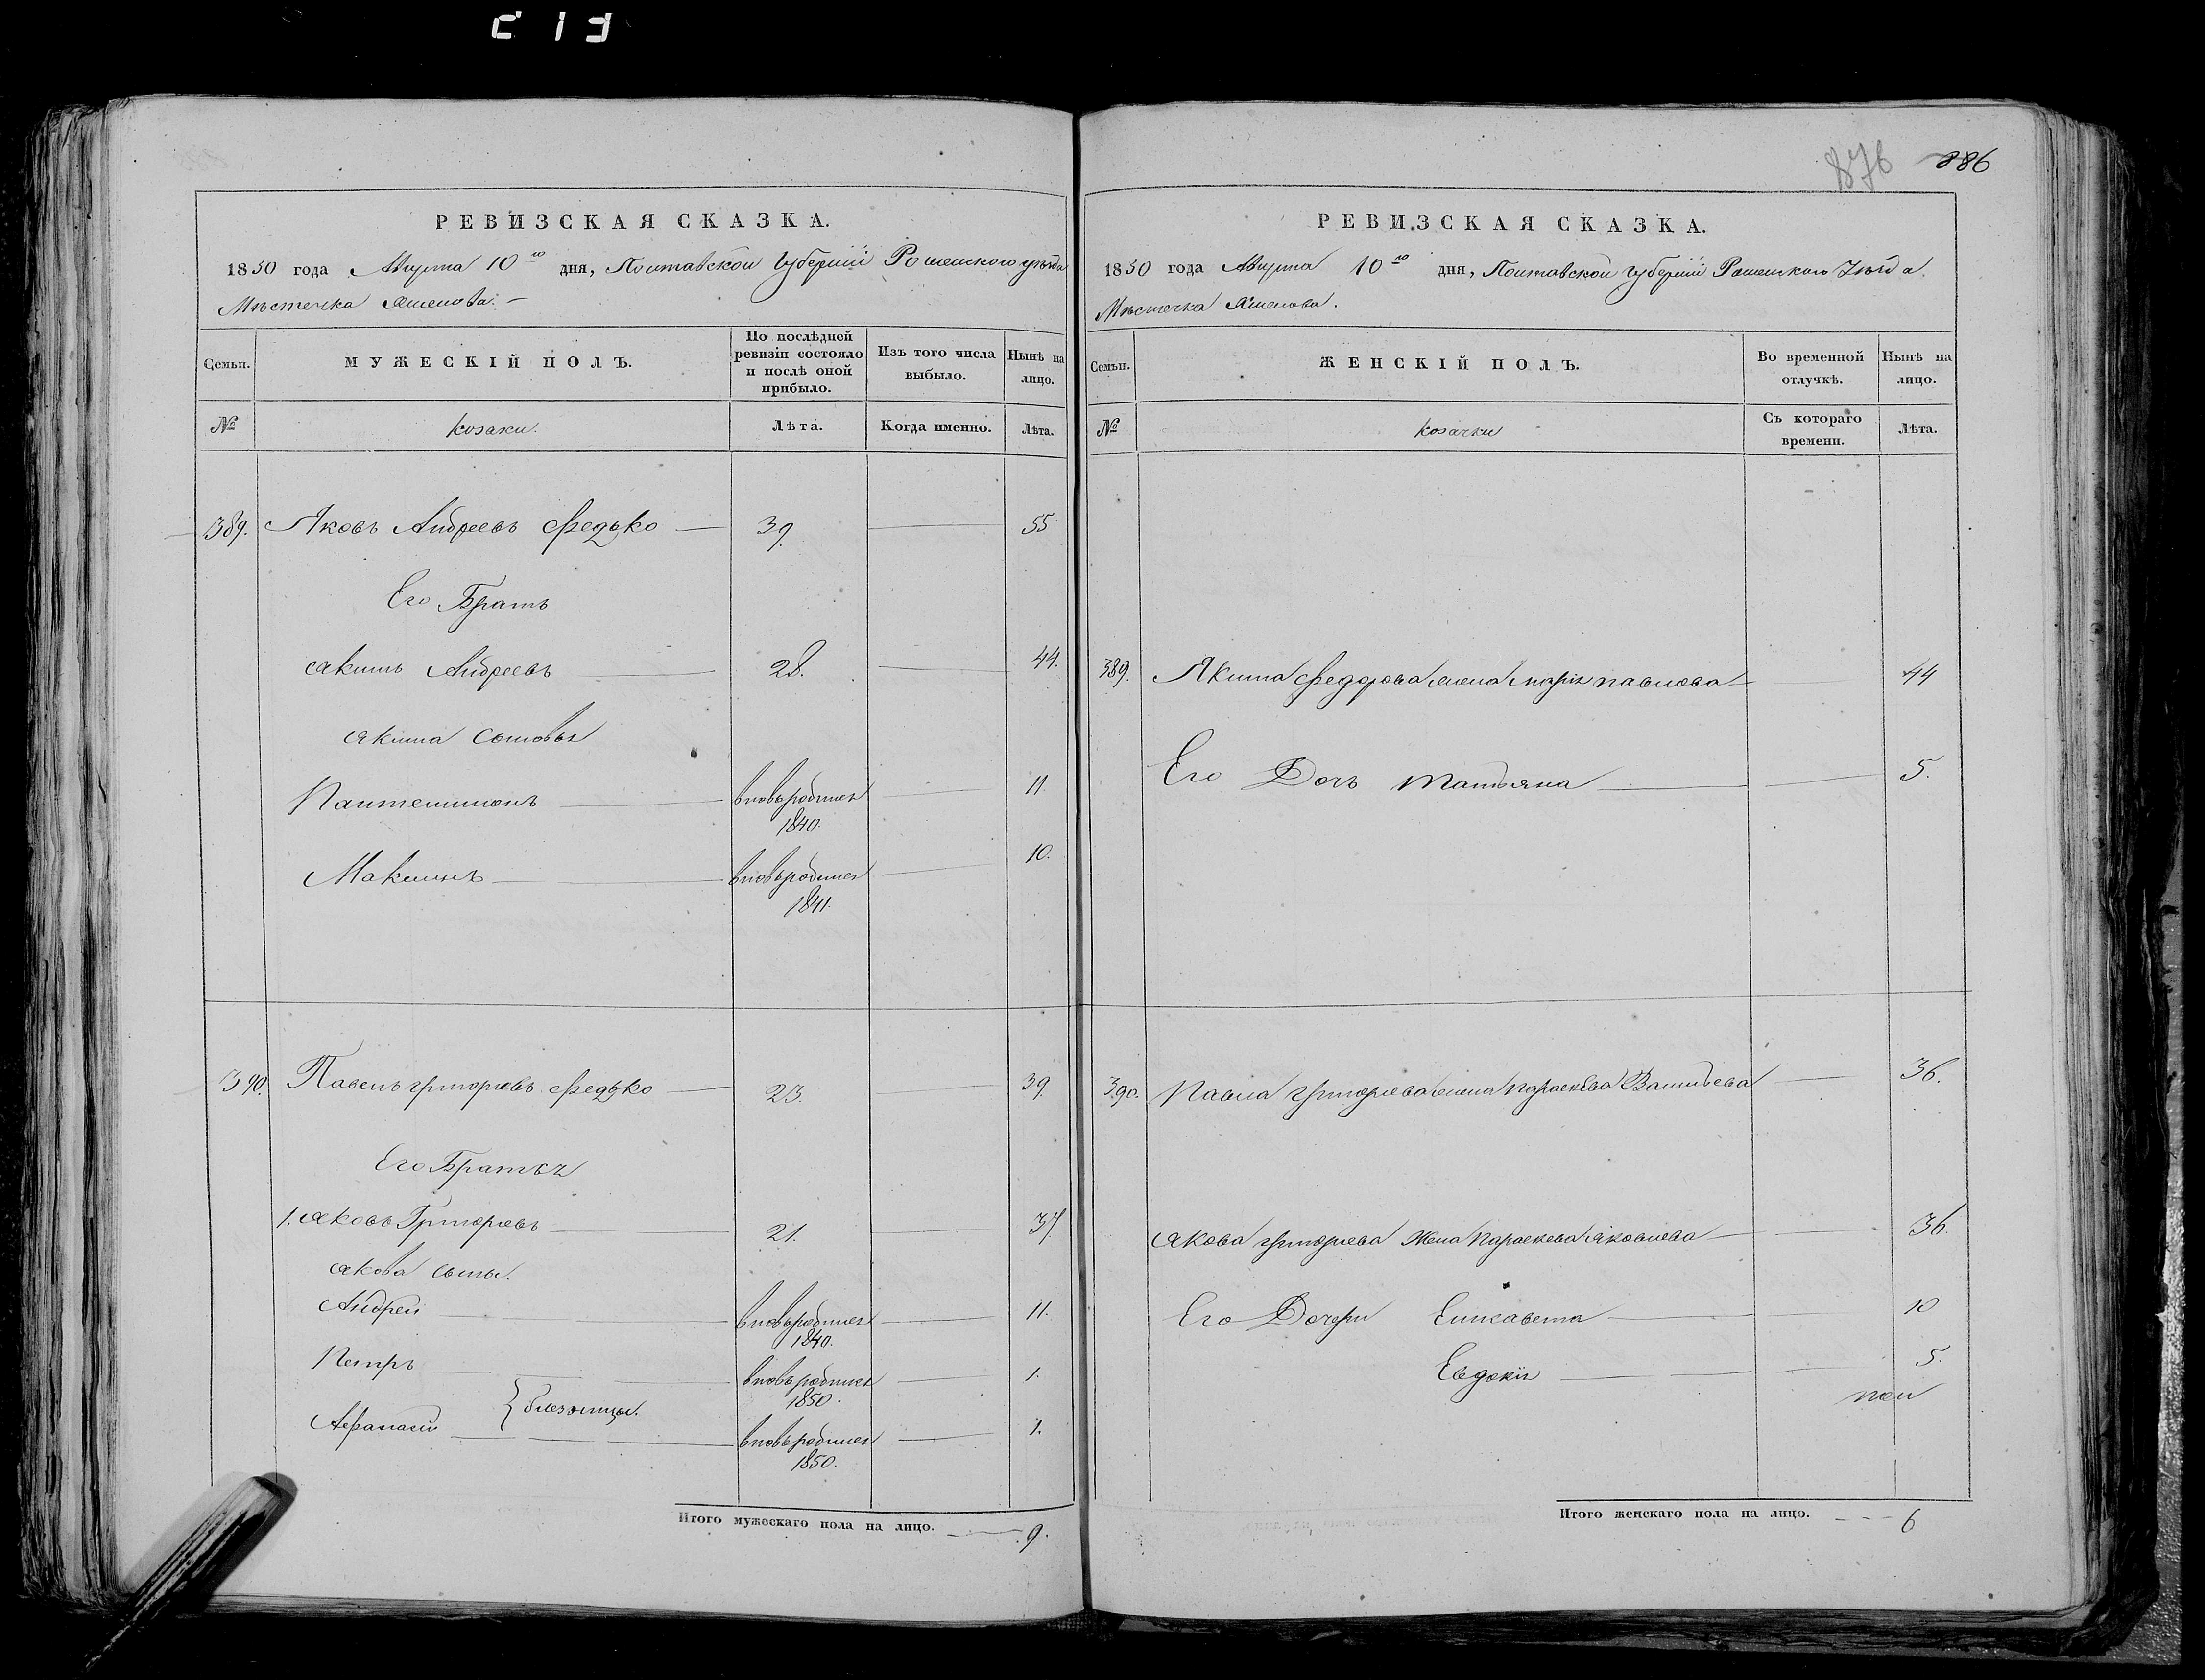 С 13
РЕВИЗСКАЯ СКАЗКА.
1850 года Августа 10го дня, Полтавской Губерніи Роменского уѣзда
Мѣстечка
Семьи.
МУЖЕСКІЙ ПОЛЪ.
По послѣдней
ревизіи состояло
и послѣ оной
прибыло.
Изъ того числа
выбыло.
Нынѣ на
лицо.
№
козаки.
Лѣта.
Когда именно.
Лѣта.
389. Яковъ Андреевъ Федько 39. 55
Его Братъ
Акимъ Андреевъ 28. 44.
Якима Сыновья
Пантелимонъ вновьродился 11.
1840.
Максимъ вновьродился 10.
1841.
390. Павелъ григорьевъ Федько 23. 39.
Его Братья
1. Яковъ Григорьевъ 21. 37
Якова сыны.
Андрей вновьродился 11.
1840.
Петръ вновьродился 1.
1850.
близницы.
Афанасій вновьродился 1.
1850.
Итого мужескаго пола на лицо. 9.
876 886
РЕВИЗСКАЯ СКАЗКА.
1850 года Августа 10го дня, Полтавской губерніи Роменскаго Уѣзда
Мѣстечка
Семьи.
ЖЕНСКІЙ ПОЛЪ.
Во временной
отлучкѣ.
Нынѣ на
лицо.
№
козачки
Съ котораго
времени.
Лѣта.
389. Якима Федорова жена Марія павлова 44
Его Дочь Татьяна 5.
390. Павла григорьева жена параскева Васильева 36.
Якова григорьева Жена параскева яковлева 36.
Его Дочери Елисавета 10
Евдокія 5.
Итого женскаго пола на лицо. 6